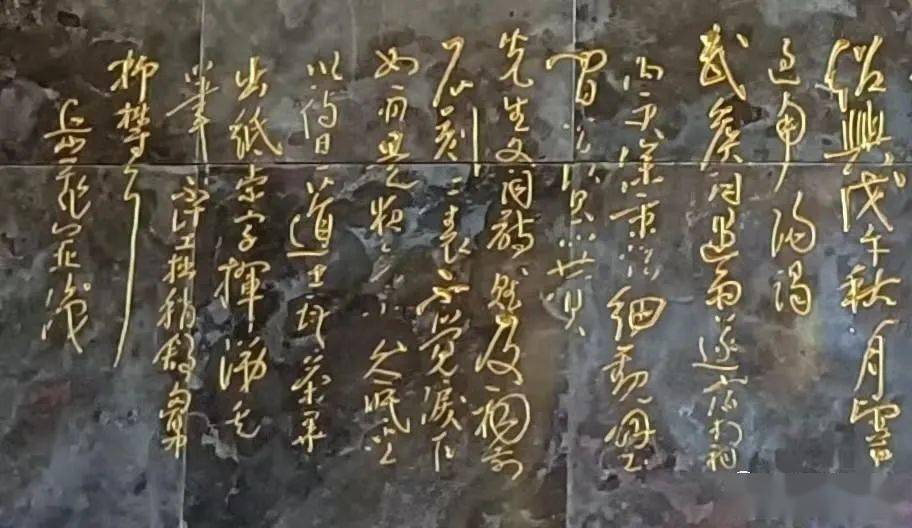 紹興戊午秋八月望前
過南陽謁
武侯祠遇雨遂宿於祠
内更深秉燭細觀壁
間昔賢所贊
先生文詞詩賦及祠前
石刻二表不覺淚下
如雨是夜竟不成眠坐
以待旦道士献茶畢
出紙索字揮涕走
筆不計工拙稍舒胸中
抑鬱耳
岳飛並識